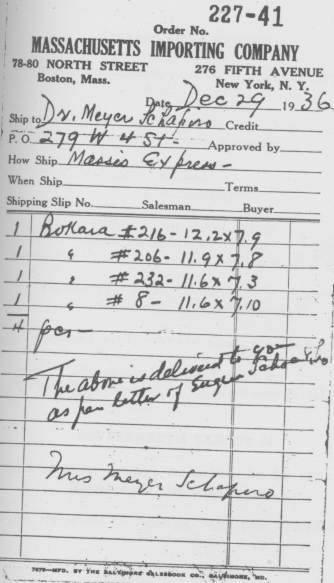 227-41
Order No.
MASSACHUSETTS IMPORTING COMPANY
78-80 NORTH STREET 276 FIFTH AVENUE
Boston, Mass. New York, N. Y.
Date Dec 29 1936
Ship to Dr. Meyer Schapiro Credit
P. O. 279 W 4 St- Approved by
How Ship Masses Express-
When Ship Terms
Shipping Slip No. Salesman Buyer
1 Bokara #216- 12.2x7.9
1 " #206- 11.9x7.8
1 " #232- 11.6x7.3
1 " #8- 11.6x7.10
4 pcs-
The above is delivered to you
as per letter of Eugen Schapiro
Mrs Meyer Schapiro
7475-MFG. BY THE BALTIMORE SALESBOOK CO., BALTIMORE, MD.